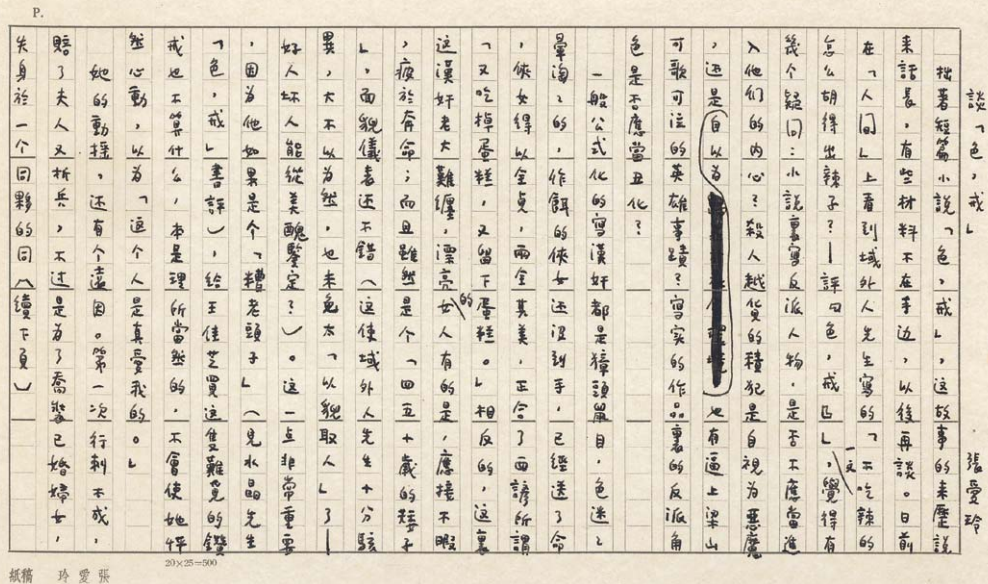 P.
談「色，戒」
張愛玲
拙著短篇小說「色，戒」，這故事的来歷說
来話長，有些材料不在手边，以後再談。日前
在「人间」上看到域外人先生寫的「不吃辣的
怎么胡得出辣子？—評『色，戒』」一文，覺得有
幾个疑问：小說裏寫反派人物，是否不應當進
入他们的内心？殺人越貨的積犯是自視為惡魔
，还是自以为也有逼上梁山
可歌可泣的英雄事蹟？寫实的作品裏的反派角
色是否應當丑化？
一般公式化的寫漢奸都是獐頭鼠目，色迷ミ
暈淘ミ的，作餌的俠女还没到手，已經送了命
，俠女得以全貞，兩全其美，正合了西諺所謂
「又吃掉蛋糕，又留下蛋糕。」相反的，这裏
這漢奸老大難纏，漂亮的女人有的是，應接不暇
，疲於奔命；而且雖然是个「四五十歲的矮子
」，而貌儀表还不錯（这使域外人先生十分駭
異，大不以為然，也未免太「以貌取人」了—
好人坏人能從美醜鑒定？）。這一点非常重要
，因為他如果是个「糟老頭子」（見水晶先生
「色，戒」書評），給王佳芝買这隻難覓的鑽
戒也不算什么，本是理所當然的，不會使她怦
然心動，以為「这个人是真愛我的。」
她的動搖，还有个遠因。第一次行刺不成，
賠了夫人又折兵，不过是為了喬裝已婚婦女，
失身於一个同夥的同（續下頁）
20×25=500
張愛玲稿紙